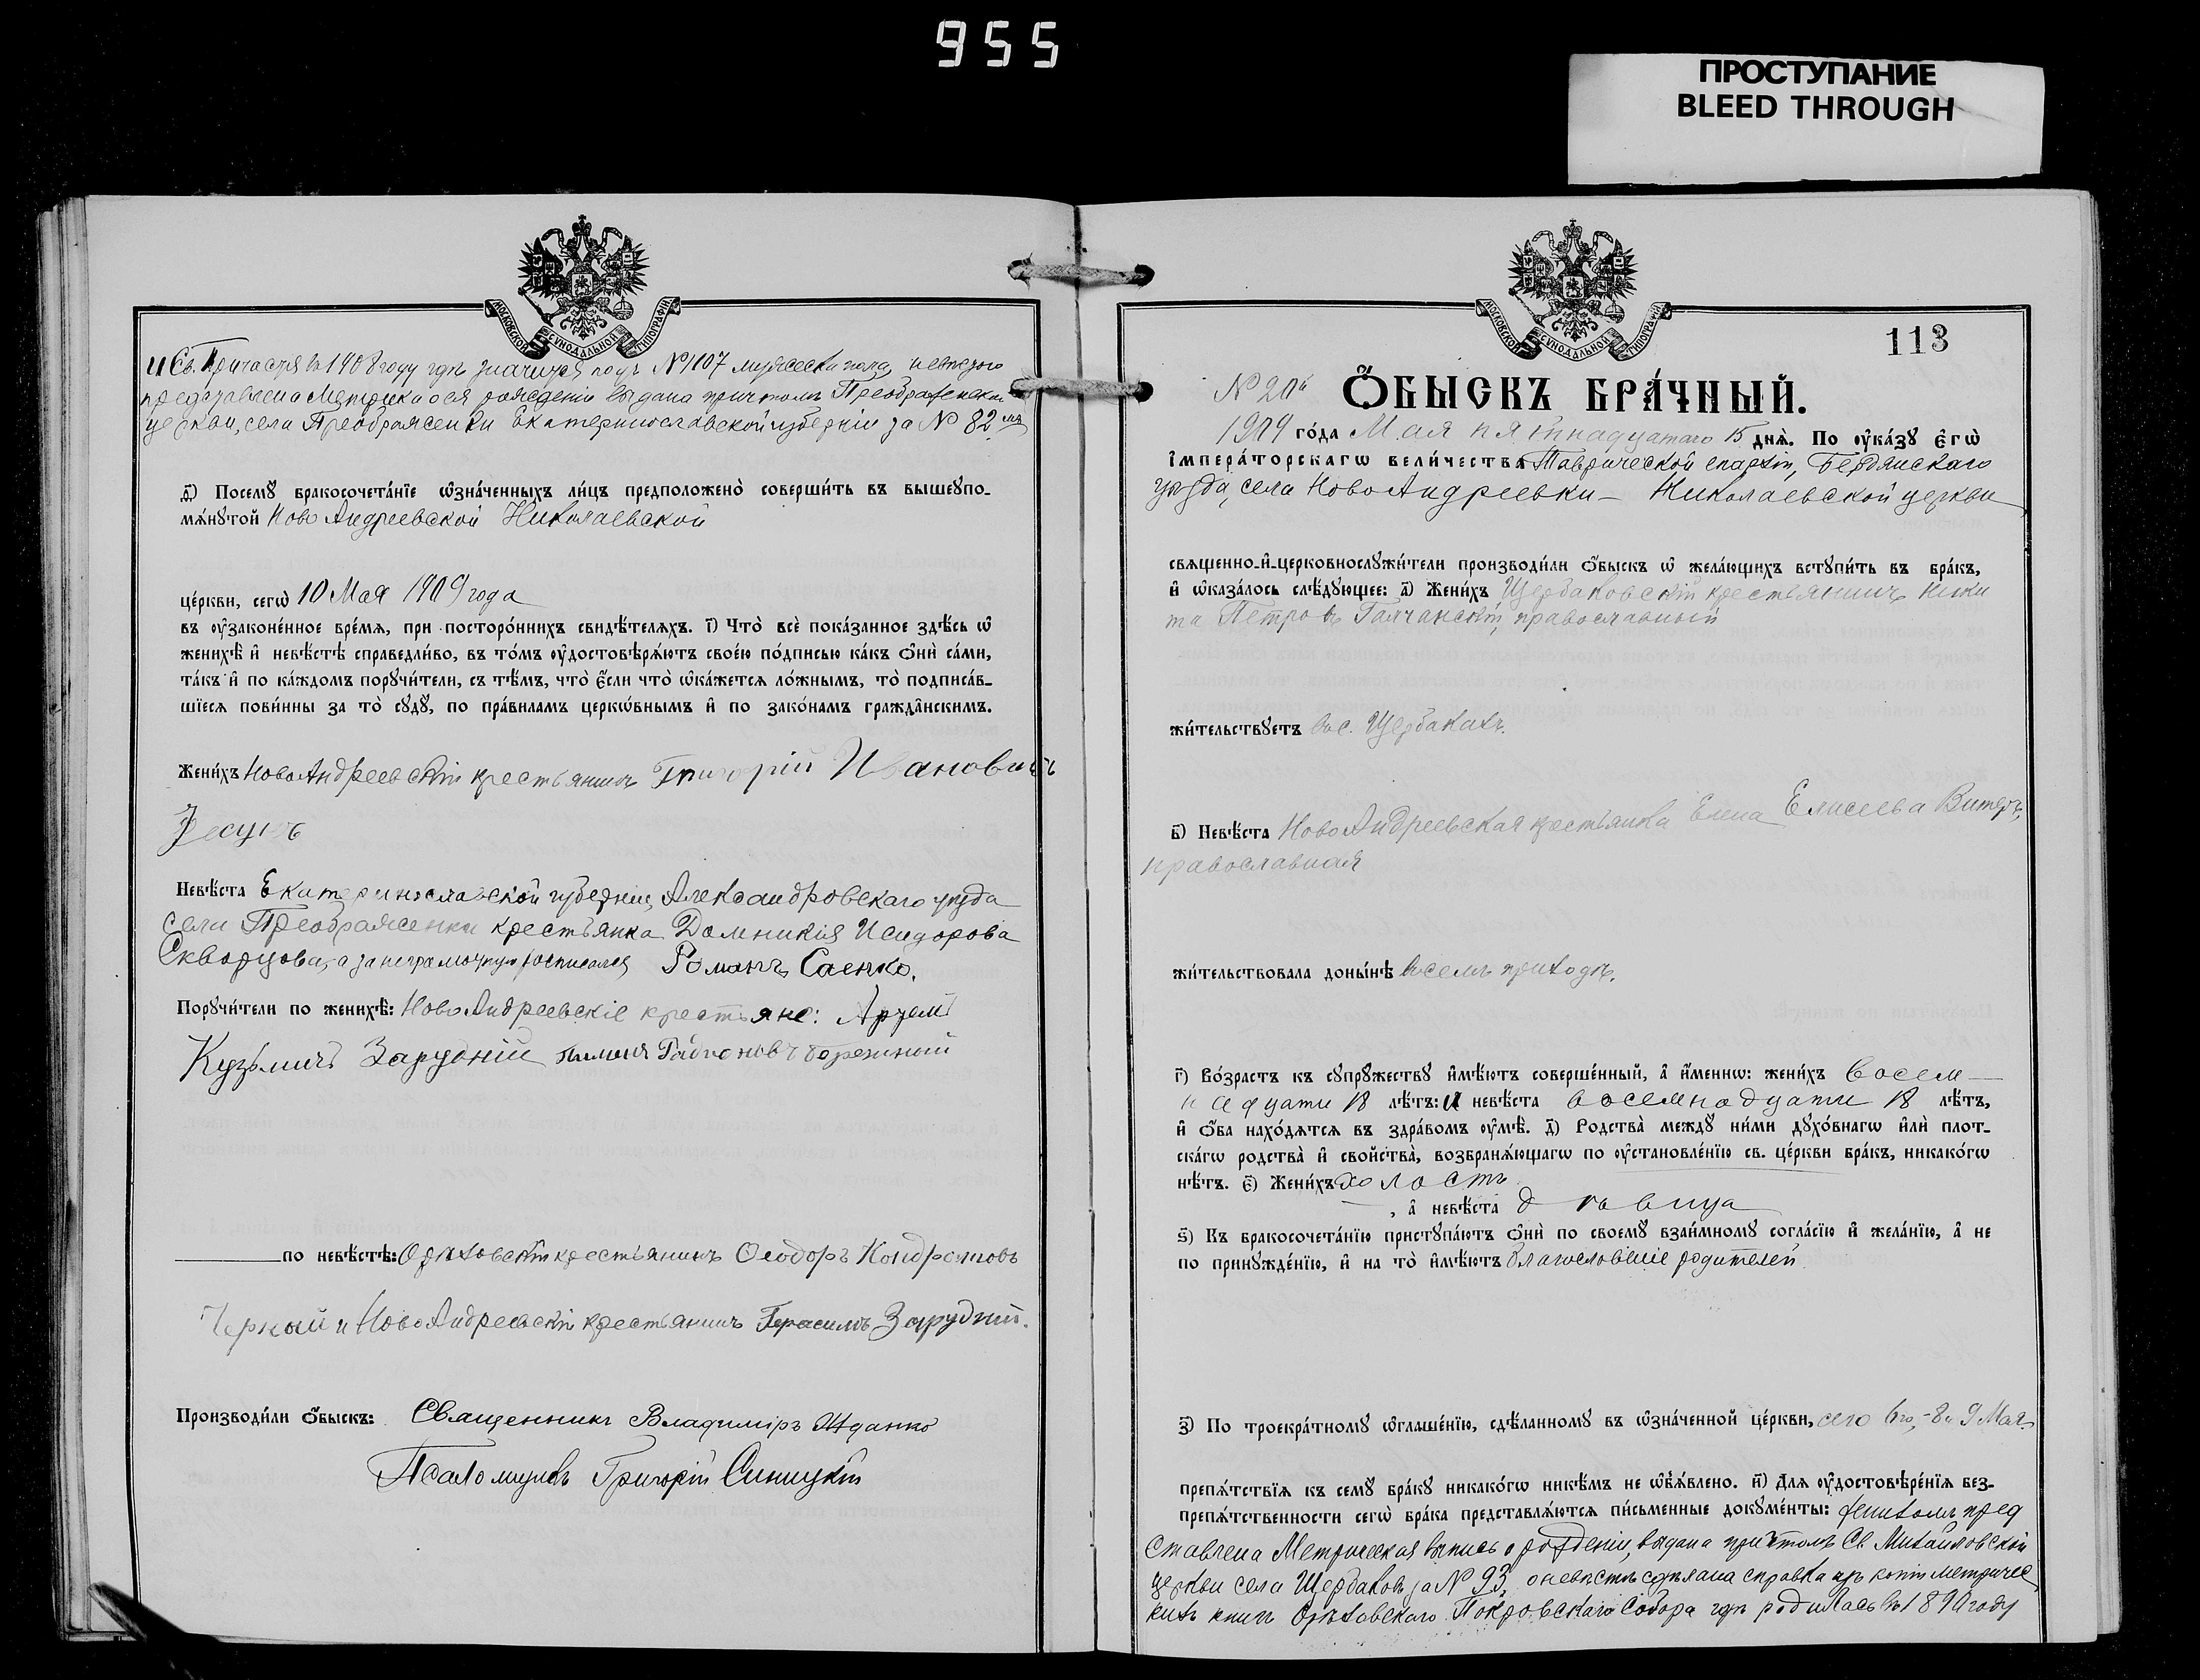 955
ПРОСТУПАНИЕ
BLEED THROUGH
МОСКОВСКОЙ СѴНОДАЛЬНОЙ ТИПОГРАФІИ
и Св. Причастія въ 1908 году гдѣ значится подъ №1107 мужеска пола,
представлена Метрика о ея рожденіи выдана причтомъ Преображенской
церкви, села Преображенки Екатеринославской губерніи за № 82.
д҃) Посемꙋ бракосочета́нїе ѡ҆зна́ченныхъ ли́цъ предположено̀ соверши́ть въ вышеупо-
мѧ́нꙋтой Ново Андреевской Николаевской
це́ркви, сегѡ̀ 10 Мая 1909 года
въ ᲂу҆законе́нное вре́мѧ, при посторо́ннихъ свидѣ́телѧхъ. і҃) Что̀ всѐ пока́занное здѣ́сь ѡ҆
женихѣ̀ и҆ невѣ́стѣ справедли́во, въ то́мъ ᲂу҆достовѣрѧ́ютъ свое́ю по́дписью ка́къ ѻ҆нѝ са́ми,
та́къ и҆ по ка́ждомъ порꙋчи́тели, съ тѣ́мъ, что̀ є҆́сли что̀ ѡ҆ка́жетсѧ ло́жнымъ, то̀ подписа́в-
шїесѧ пови́нны за то̀ сꙋдꙋ̀, по пра́виламъ церкѡ́внымъ и҆ по зако́намъ гражда̂нскимъ.
Жени́хъ Ново Андреевскій крестьянинъ Григорій Ивановичъ
Невѣ́ста Екатеринославской губерніи, Александровскаго уѣзда
села Преображенки крестьянка Домникія Исидорова
Скворцова, а за неграмотную росписался Романъ Саенко.
Порꙋчи́тели по женихѣ̀: Ново Андреевскіе крестьяне: Артемъ
Кузьмичъ Зарудній
по невѣ́стѣ: Орѣховскій крестьянинъ Ѳеодоръ Кондратовъ
Черный и Ново Андреевскій крестьянинъ Герасимъ Зарудній.
Производи́ли ѻ҆́быскъ: Священникъ Владиміръ Жданко
Псаломщикъ Григорій Синицкій
МОСКОВСКОЙ СѴНОДАЛЬНОЙ ТИПОГРАФІИ
113
№ 20й
Ѻ҆́БЫСКЪ БРА́ЧНЫЙ.
1909 го́да Мая пятнадцатаго 15 днѧ̀. По ᲂу҆ка́зꙋ є҆гѡ̀
і҆мпера́торскагѡ вели́чества Таврической епархіи, Бердянскаго
уѣзда, села Ново Андреевки – Николаевской церкви
свѧщенно-и҆-церковнослꙋжи́тели производи́ли ѻ҆́быскъ ѡ҆ жела́ющихъ встꙋпи́ть въ бра́къ,
и҆ ѡ҆каза́лось слѣ́дꙋющее: а҃) Жени́хъ Щербаковскій крестьянинъ Ники
та Петровъ Галчанскій, православный
жи́тельствꙋетъ въ с. Щербакахъ.
в҃) Невѣ́ста Ново Андреевская крестьянка Елена Елисеева Витеръ,
православная
жи́тельствовала доны́нѣ въ семъ приходѣ.
г҃) Во́зрастъ къ сꙋпрꙋ́жествꙋ и҆мѣ́ютъ соверше́нный, а҆ и҆́менно: жени́хъ восем-
надцати 18 лѣ́тъ: и невѣ́ста восемнадцати 18 лѣ́тъ,
и҆ ѻ҆́ба нахо́дѧтсѧ въ здра́вомъ ᲂу҆мѣ̀. д҃) Родства̀ междꙋ̀ ни́ми дꙋхо́внагѡ и҆лѝ плот-
ска́гѡ родства̀ и҆ свойства̀, возбранѧ́ющагѡ по ᲂу҆становле́нїю св. це́ркви бра́къ, никако́гѡ
нѣ́тъ. є҃) Жени́хъ холостъ
, а҆ невѣ́ста дѣвица
ѕ҃) Къ бракосочета́нїю пристꙋпа́ютъ ѻ҆нѝ по своемꙋ̀ взаи́мномꙋ согла́сїю и҆ жела́нїю, а҆ не
по принꙋжде́нїю, и҆ на то̀ и҆мѣ́ютъ благословеніе родителей
з҃) По троекра́тномꙋ ѡ҆глаше́нїю, сдѣ́ланномꙋ въ ѡ҆зна́ченной це́ркви, сего 6го, - 8 и 9 Мая
препѧ́тствїѧ къ семꙋ̀ бра́кꙋ никако́гѡ никѣ́мъ не ѡ҆б̾ѧ́влено. и҃) Длѧ ᲂу҆достовѣре́нїѧ без-
препѧ́тственности сегѡ̀ бра́ка представлѧ́ютсѧ пи́сьменные докꙋме́нты: женихомъ пред
ставлена Метрическая выпись о рожденіи, выдана причтомъ Св. Михайловской
церкви села Щербаковъ за № 93, о невѣстѣ сдѣлана справка изъ копіи метричес
кихъ книгъ Орѣховскаго Покровскаго Собора гдѣ родилась въ 1890 году